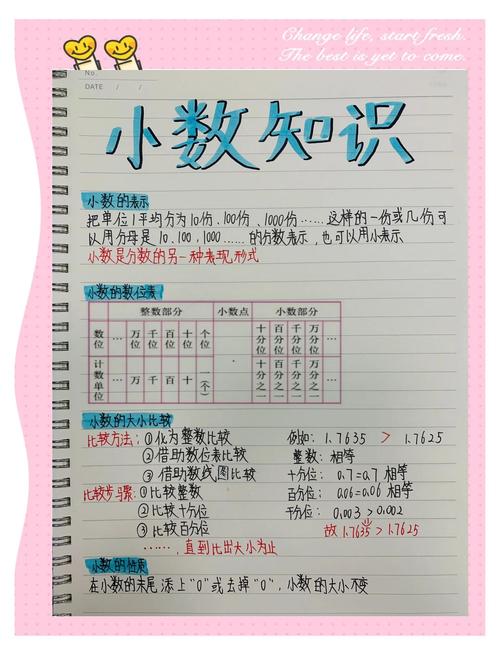 Change life, start fresh.
The best is yet to come.
No.
DATE / /
小数知识
小数的表示
把单位1平均分为10份、100份、1000份……这样的一份或几份可
以用分母是10、100、1000……的分数表示，也可以用小表示
小数是分数的另一种表现形式
小数的数位表
整数部分 小数点 小数部分
数位 … 万位 千位 百位 十位 个位 . 十分位 百分位 千分位 万分位 …
计数单位 … 万 千 百 十 一（个） 十分之一 百分之一 千分之一 万分之一 …
小数的大小比较
比较方法：①化为整数比较 例如：1.7635 > 1.7625
②借助数位表比较 整数：相等
③借助数线图比较 十分位：0.7=0.7 相等
比较步骤：①比较整数 百分位：0.06=0.06 相等
②比较十分位 千分位：0.003 > 0.002
③比较百分位 故1.7635 > 1.7625
……，直到比出大小为止
小数的性质
在小数的末尾添上"0"或去掉"0"，小数的大小不变